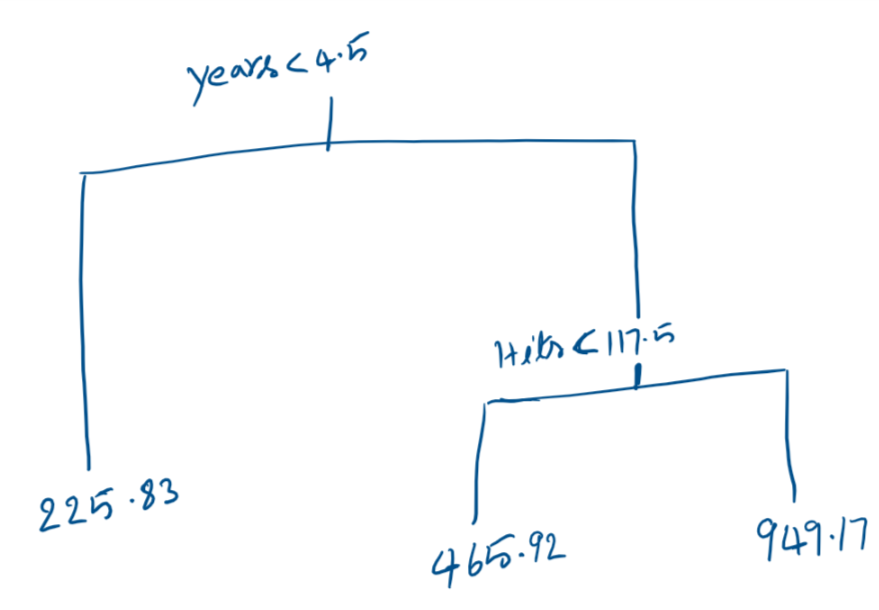 years < 4.5
Hits < 117.5
225.83
465.92
949.17